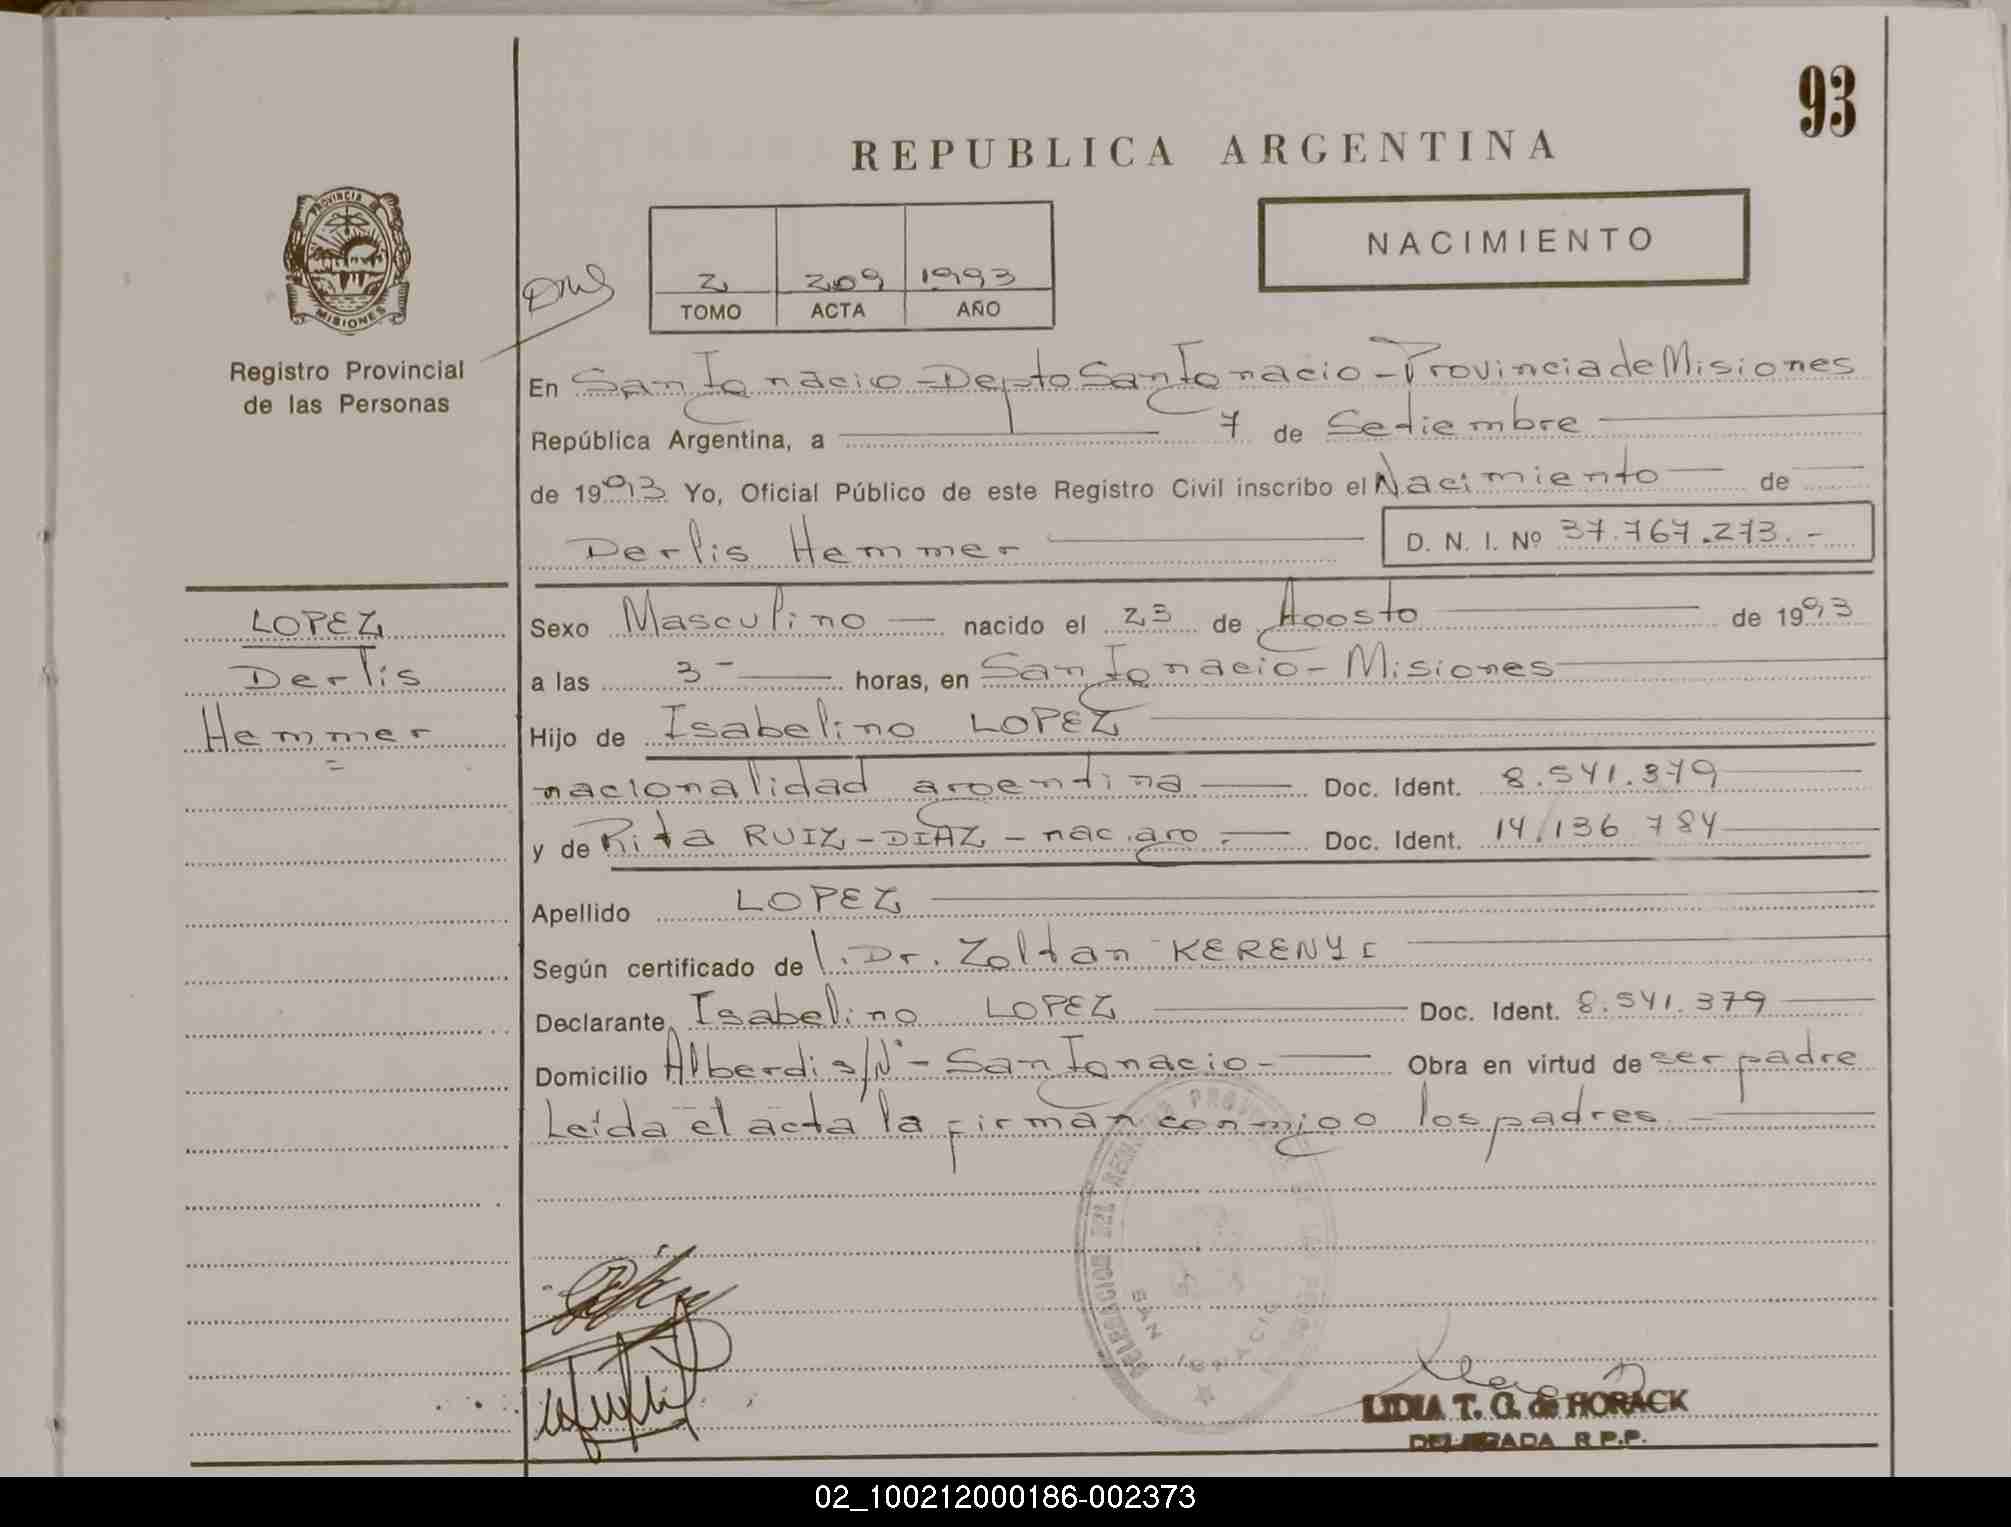 93
REPUBLICA ARGENTINA
PROVINCIA DE
MISIONES
Registro Provincial
de las Personas
2 209 1993
TOMO ACTA AÑO
NACIMIENTO
En San Ignacio - Depto San Ignacio - Provincia de Misiones
República Argentina, a 7 de Setiembre
de 1993 Yo, Oficial Público de este Registro Civil inscribo el Nacimiento de
Derlis Hemmer D. N. I. Nº 37.767.273.-
LOPEZ
Derlis
Hemmer
Sexo Masculino nacido el 23 de Agosto de 1993
a las 3 - horas, en San Ignacio - Misiones
Hijo de Isabelino LOPEZ
nacionalidad argentina Doc. Ident. 8.541.379
y de Rita RUIZ - DIAZ - nac. arg. - Doc. Ident. 14.136.784
Apellido LOPEZ
Según certificado de l. Dr. Zoltan KERENYI
Declarante Isabelino LOPEZ Doc. Ident. 8.541.379
Domicilio Alberdi s/Nº - San Ignacio - Obra en virtud de ser padre
Leida el acta la firman conmigo los padres.
SAN IGNACIO
LIDIA T. G. de HORACK
DELEGADA R.P.P.
02_100212000186-002373